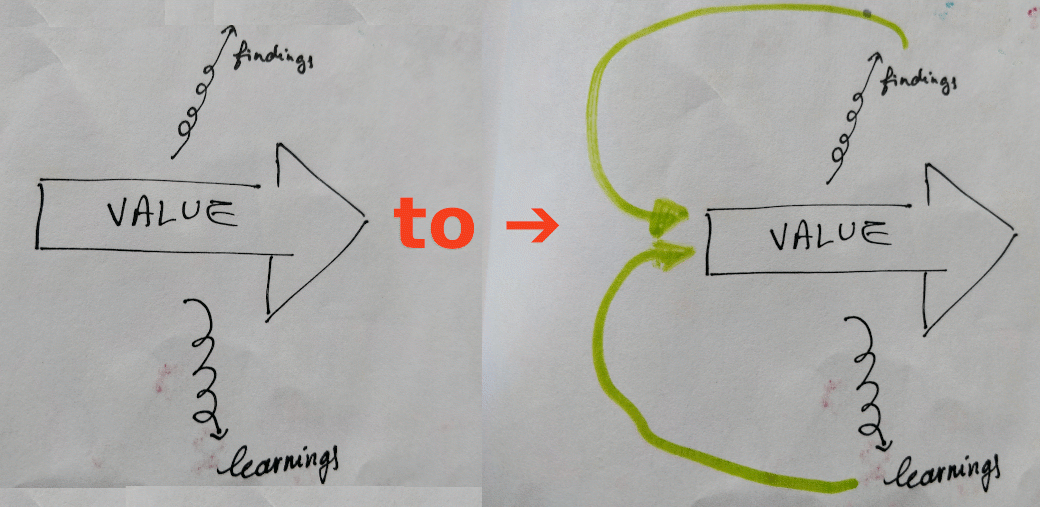 findings
VALUE
learnings
to →
findings
VALUE
learnings